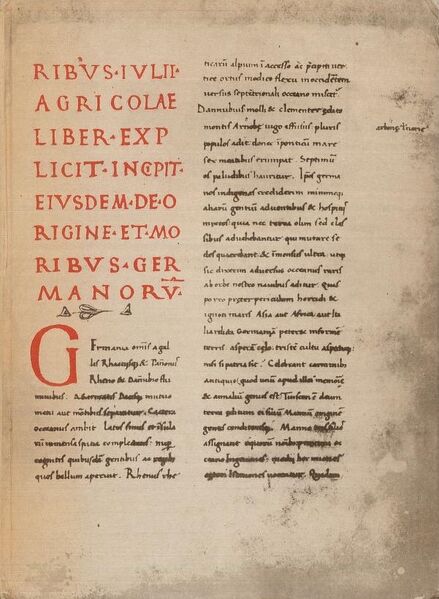 RIBVS·IVLII·
AGRICOLAE
LIBER·EXP
LICIT·INCIPIT·
EIVSDEM·DE·O
RIGINE·ET·MO
RIBVS·GER
MANORV̅·
Germania om̅is a gal
lis Rhaetisq; & Panoniis
Rheno & Danubio flu
minibus. a Sarmatis Dacisq; mutuo
metu aut montibus separatur. Caetera
occeanus ambit latos sinus et i̅sula
ru̅ immensa spatia complectens nup
cognitis quibusda̅ gentibus ac regib
quos bellum aperuit. Rhenus rhe
ticaru̅ alpium i̅accesso ac p̅cipiti ver
tice ortus modico flexu in occide̅tem
versus septe̅trionali occeano miscet᷑.
Dannubius molli & clementer edito
montis Arnobę iugo effusus pluris
populos adit donec i̅ ponticu̅ mare
sex meatibus erumpat. Septimu̅
os paludibus hauritur. Ip̅os germa
nos indigenas crediderim minimeq;
aliaru̅ gentiu̅ aduentibus & hospitiis
mixtos quia nec terra olim sed clas
sibus aduehebantur qui mutare se
des quaerebant & i̅mensus ultra utq;
sic dixerim aduersus occeanus raris
ab orbe nostro nauibus aditur. Quis
porro pręter periculum horridi &
ignoti maris Asia aut Africa aut Ita
lia relicta Germania̅ peteret informe̅
terris. aspera̅ cęlo. triste̅ cultu aspectuq;
nisi si patria sit. Celebrant carminibus
antiquis quod unu̅ apud illos memorię
& annaliu̅ genus est Tuisconem deum
terra editum et filiu̅ Mannu̅ origine̅
gentis conditoresq; Manno tris filios
assignant equoru̅ nominibus proximi oc
ceano Ingaeuones. medii
ceteri Istaeuones uocentur. Quidam